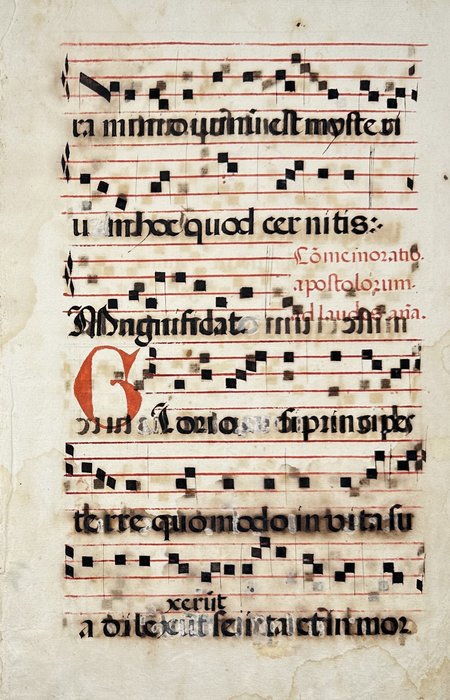 est mysteri
um hoc quod cer nitis:
Cōmemoratio
apostolorum.
ad laudes. aña.
Magnificat.
Glorio si principes
te rre quomodo in vita su
xerūt
a dile se ita et in mor